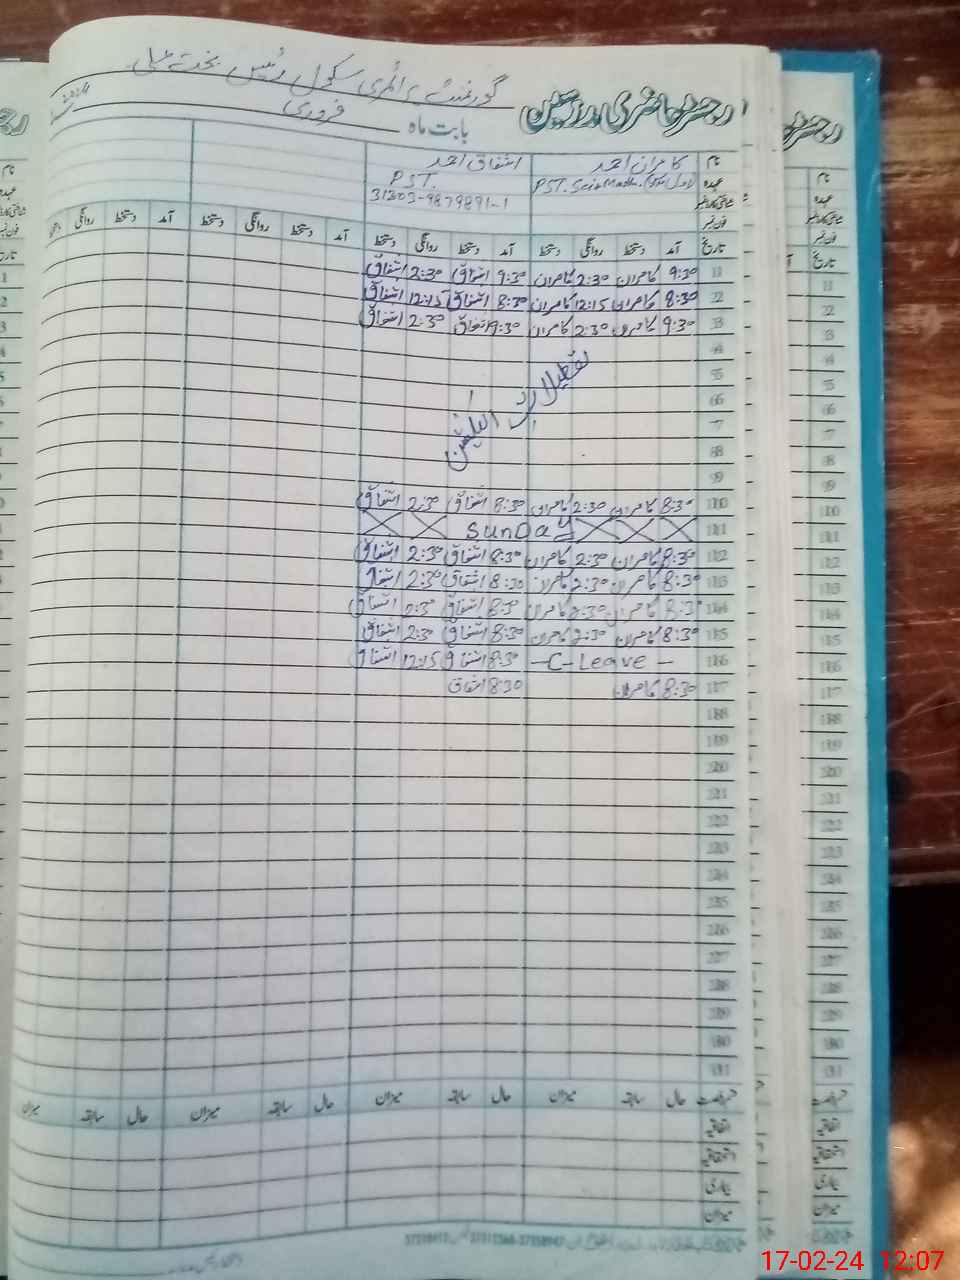 گورنمنٹ پرائمری سکول رئیس بخت علی
رجسٹر حاضری مدرسین
بابت ماہ فروری 2024
نام کامران احمد اشفاق احمد
عہدہ PST. PST.
شناختی کارڈ نمبر 31303-9879891-1
فون نمبر
تاریخ آمد دستخط روانگی دستخط آمد دستخط روانگی دستخط آمد دستخط روانگی دستخط آمد دستخط روانگی
1 9:30 کامران 2:30 کامران 9:30 اشفاق 2:30 اشفاق
2 8:30 کامران 12:15 کامران 8:30 اشفاق 12:15 اشفاق
3 9:30 کامران 2:30 کامران 9:30 اشفاق 2:30 اشفاق
4
5
6
7
تعطیلات الیکشن
8
9
10 8:30 کامران 2:30 کامران 8:30 اشفاق 2:30 اشفاق
11 SunDay
12 8:30 کامران 2:30 کامران 8:30 اشفاق 2:30 اشفاق
13 8:30 کامران 2:30 کامران 8:30 اشفاق 2:30 اشفاق
14 8:30 کامران 2:30 کامران 8:30 اشفاق 2:30 اشفاق
15 8:30 کامران 2:30 کامران 8:30 اشفاق 2:30 اشفاق
16 -C-Leave- 8:30 اشفاق 12:15 اشفاق
17 8:30 کامران 8:30 اشفاق
18
19
20
21
22
23
24
25
26
27
28
29
30
31
حال سابقہ میزان حال سابقہ میزان حال سابقہ میزان حال سابقہ میزان
اتفاقیہ
استحقاقیہ
بیماری
میزان
17-02-24 12:07